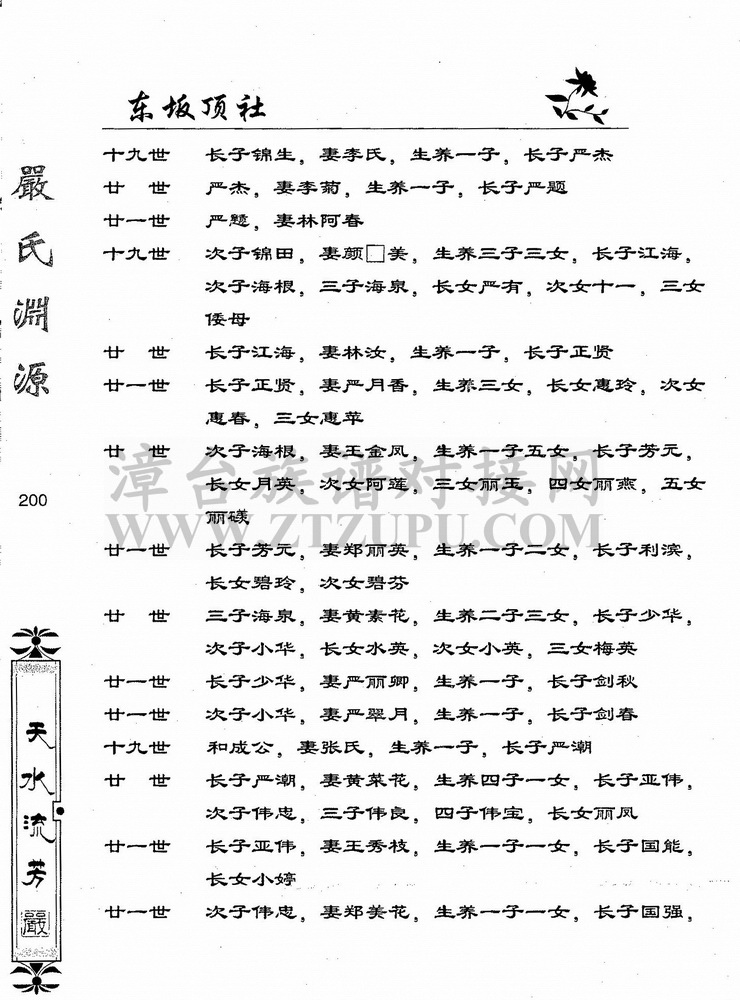 东坂顶社
十九世 长子锦生，妻李氏，生养一子，长子严杰
廿 世 严杰，妻李菊，生养一子，长子严题
廿一世 严题，妻林阿春
十九世 次子锦田，妻颜□美，生养三子三女，长子江海，
次子海根，三子海泉，长女严有，次女十一，三女
倭母
廿 世 长子江海，妻林汝，生养一子，长子正贤
廿一世 长子正贤，妻严月香，生养三女，长女惠玲，次女
惠春，三女惠苹
廿 世 次子海根，妻王金凤，生养一子五女，长子芳元，
长女月英，次女阿莲，三女丽玉，四女丽燕，五女
丽碤
廿一世 长子芳元，妻郑丽英，生养一子二女，长子利滨，
长女碧玲，次女碧芬
廿 世 三子海泉，妻黄素花，生养二子三女，长子少华，
次子小华，长女水英，次女小英，三女梅英
廿一世 长子少华，妻严丽卿，生养一子，长子剑秋
廿一世 次子小华，妻严翠月，生养一子，长子剑春
十九世 和成公，妻张氏，生养一子，长子严潮
廿 世 长子严潮，妻黄菜花，生养四子一女，长子亚伟，
次子伟忠，三子伟良，四子伟宝，长女丽凤
廿一世 长子亚伟，妻王秀枝，生养一子一女，长子国能，
长女小婷
廿一世 次子伟忠，妻郑美花，生养一子一女，长子国强，
嚴氏淵源
200
天水流芳
嚴
漳台族谱对接网
WWW.ZTZUPU.COM